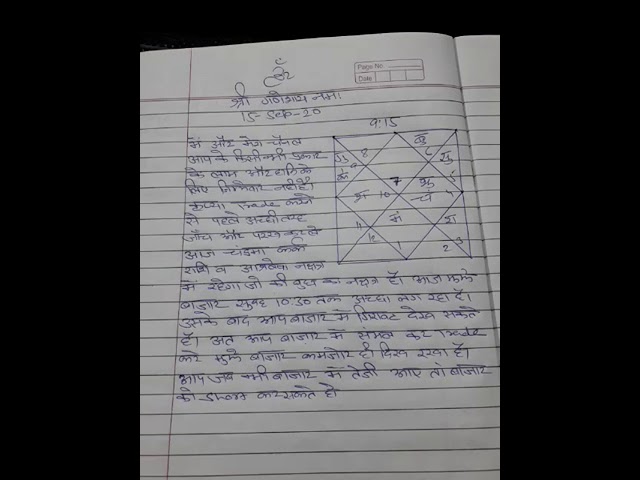 ॐ
Page No
Date
श्री गणेशाय नमः
15-Sep-20
9:15
मैं और मेरा चैनल
आपके किसी भी प्रकार
के लाभ और हानि के
लिए जिम्मेवार नहीं है।
कृप्या Trade करने
से पहले अच्छी तरह
जाँच और परख कर ले
आज चंद्रमा कर्क
राशि व आश्लेषा नक्षत्र
में रहेगा जो की बुध का नक्षत्र है। आज मुझे
बाजार सुबह 10:30 तक अच्छा लग रहा है।
उसके बाद आप बाजार में गिरावट देख सकते
है। अत आप बाजार में संभल कर Trade
करे मुझे बाजार कमजोर ही दिख रहा है।
आप जब भी बाजार में तेजी आए तो बाजार
को Short कर सकते हो
8
9
7
10
श
मं
11
12
1
2
3